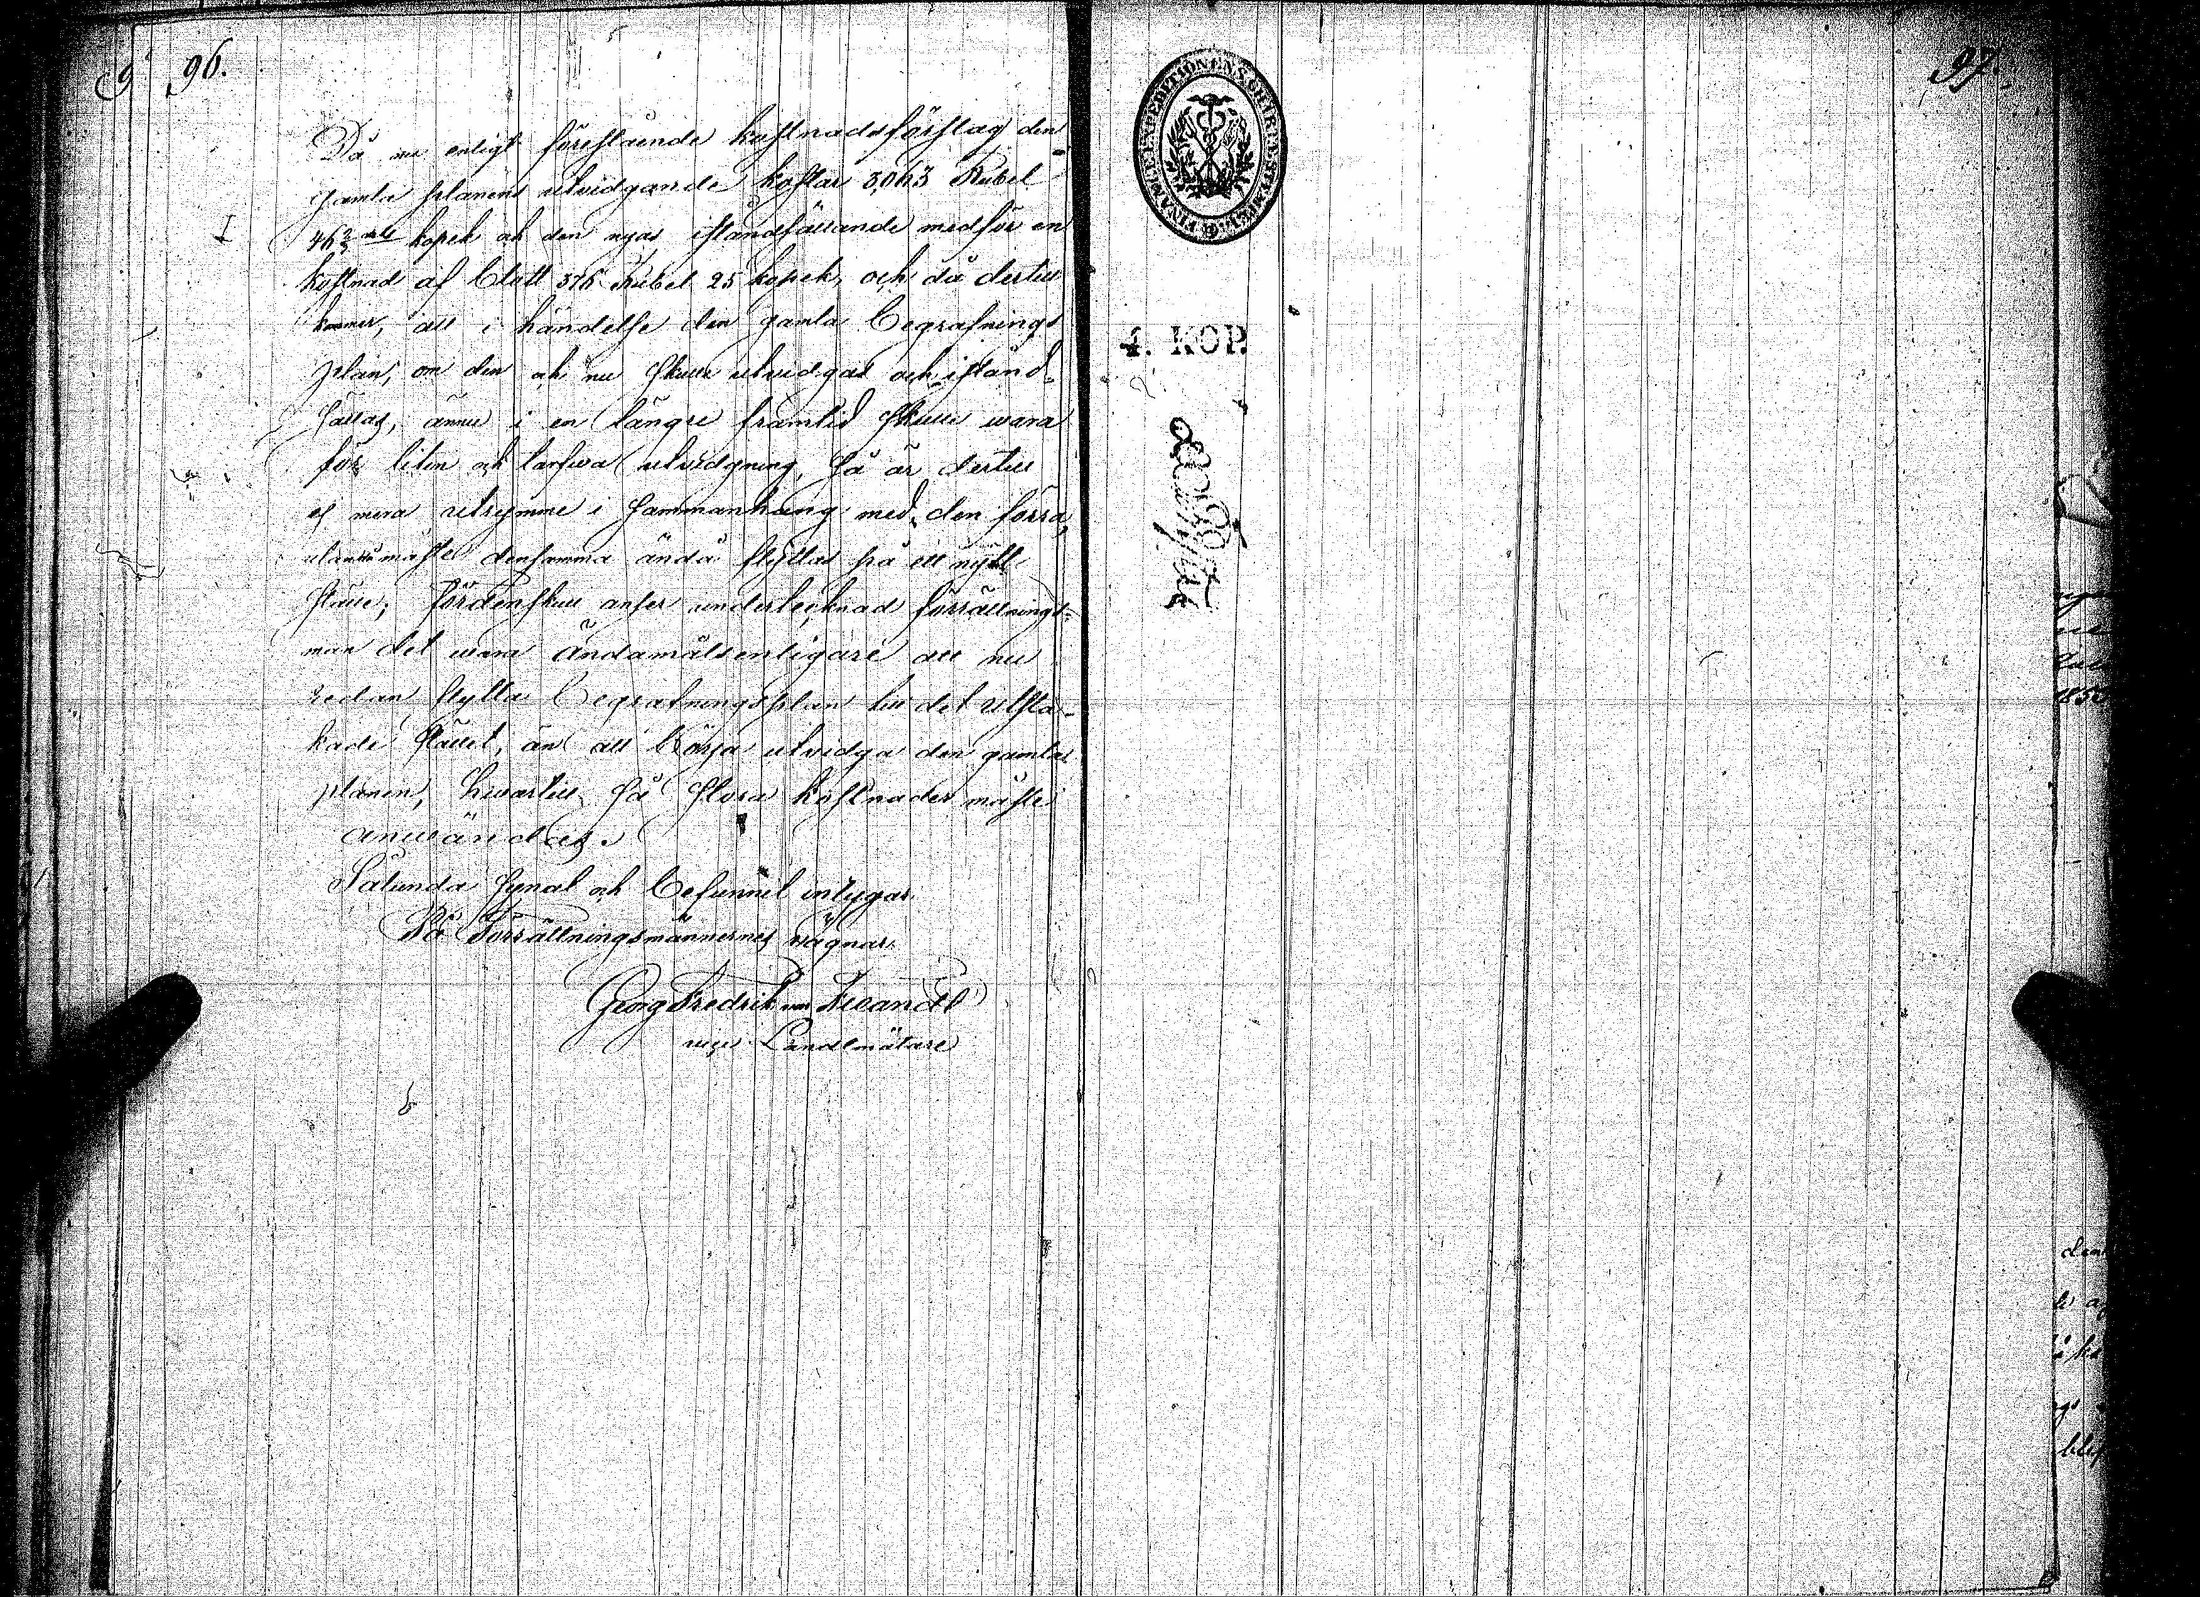 96.
Då nu enligt förestående kostnadsförslag den
gamla planens utvidgande kostar 3,063 Rubel
46 2/3 kopek och den nyas iståndsättande medför en
kostnad af blott 376 Rubel 25 kopek, och då dertill
kommer, att i händelse den gamla begrafnings
plan, om den ock nu skulle utvidgas och istånd-
sättas, ännu i en längre framtid skulle wara
för liten och tarfwa utvidgning, så är dertill
ej mera utrymme i sammanhang med den förra,
utan måste densamma ändå flyttas på ett nytt
ställe; fördenskull anser undertecknad förrättnings-
man det wara ändamålsenligare att nu
redan flytta begrafningsplan till det utsta-
kade stället, än att börja utvidga den gamla
planen, hwartill så stora kostnader måste
användas.
Sålunda synat och befunnit intygar.
På Förrättningsmännernes vägnar.
Georg Fredrik
vice Landtmätare
97.
FINANCE EXPEDITIONENS CHARTÆ STEMPEL
4. KOP.